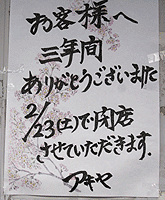 お客様へ
三年間
ありがとうございました
2/23(土)で閉店
させていただきます.
アキヤ